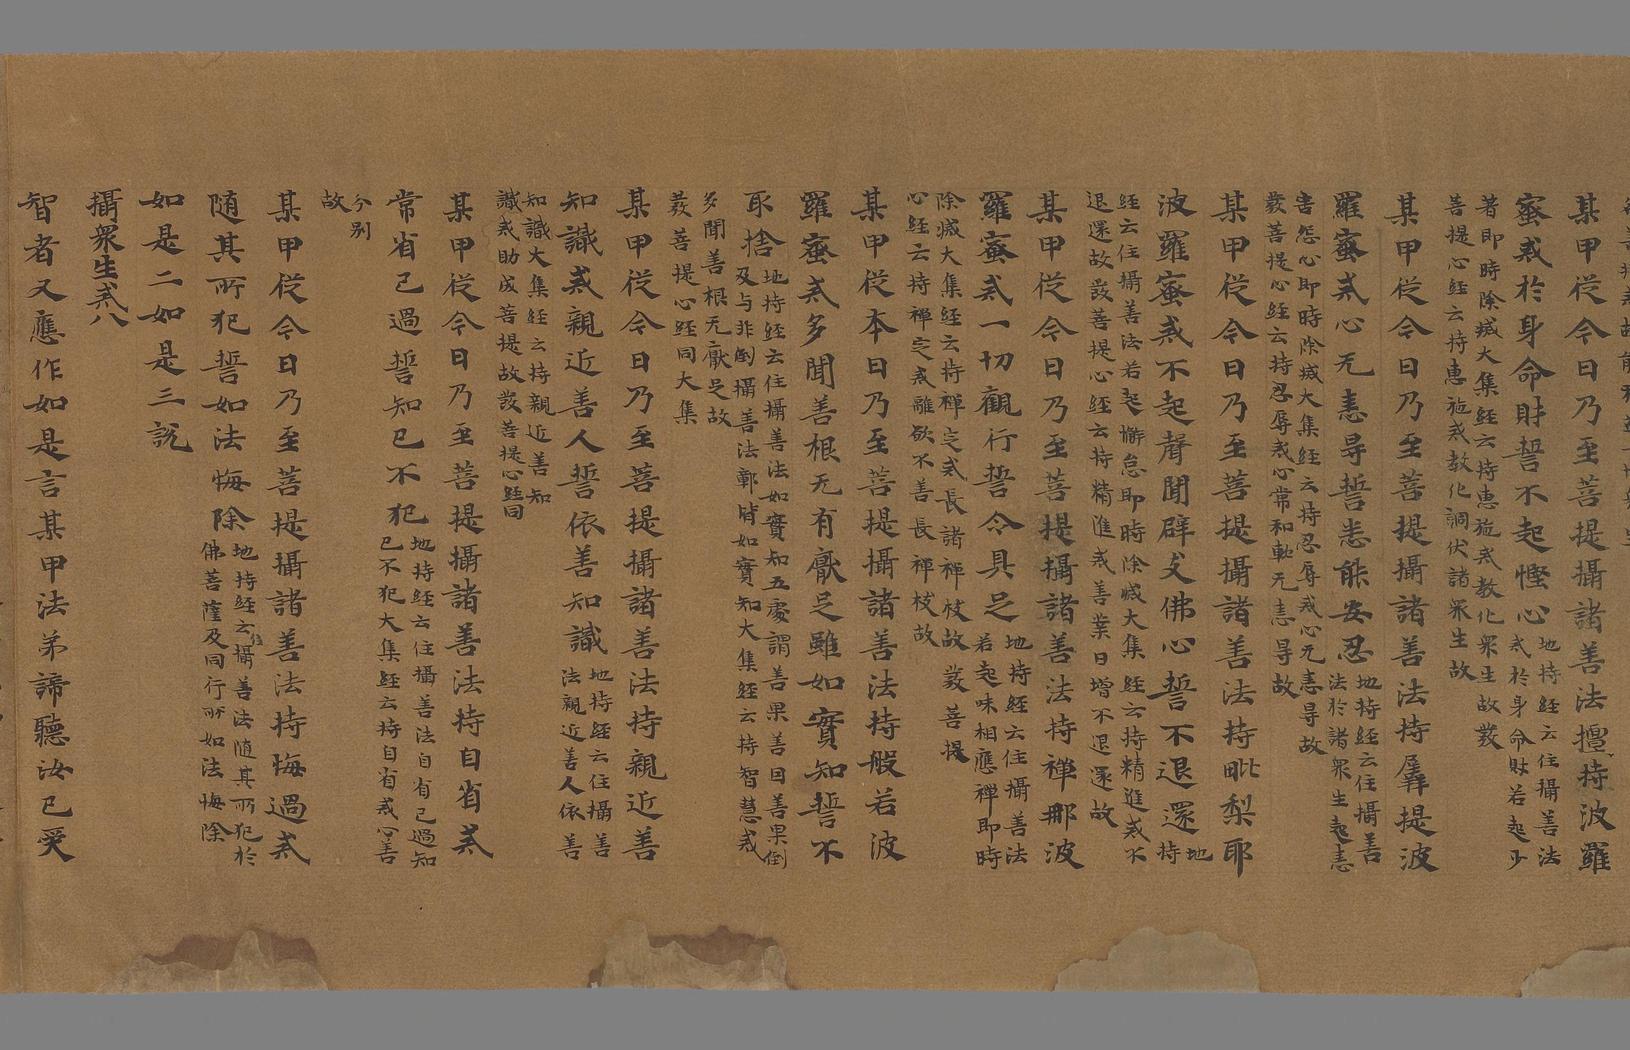 某甲從今日乃至菩提攝諸善法擅持波羅
蜜戒於身命財誓不起慳心地持經云住攝善法
戒於身命財若起少
著即時除滅大集經云持惠施戒教化眾生故發
菩提心經云持惠施戒教化調伏諸眾生故
某甲從今日乃至菩提攝諸善法持羼提波
羅蜜戒心无恚㝵誓悉能安忍地持經云住攝善
法於諸眾生起恚
害怨心即時除滅大集經云持忍辱戒心无恚㝵故
發菩提心經云持忍辱戒心常和軟无恚㝵故
某甲從今日乃至菩提攝諸善法持毗梨耶
波羅蜜戒不起聲聞辟支佛心誓不退還地
持
經云住攝善法若起懈怠即時除滅大集經云持精進戒不
退還故發菩提心經云持精進戒善業日增不退還故
某甲從今日乃至菩提攝諸善法持禪那波
羅蜜戒一切觀行誓令具足地持經云住攝善法
若起味相應禪即時
除滅大集經云持禪定戒長諸禪枝故發菩提
心經云持禪定戒離欲不善長禪枝故
某甲從本日乃至菩提攝諸善法持般若波
羅蜜戒多聞善根无有猒足雖如實知誓不
取捨地持經云住攝善法如實知五處謂善果善因善果倒
及与非倒攝善法鄣皆如實知大集經云持智慧戒
多聞善根无猒足故
發菩提心經同大集
某甲從今日乃至菩提攝諸善法持親近善
知識戒親近善人誓依善知識地持經云住攝善
法親近善人依善
知識大集經云持親近善知
識戒助成菩提故發菩提心經同
某甲從今日乃至菩提攝諸善法持自省戒
常省己過誓知已不犯地持經云住攝善法自省己過知
已不犯大集經云持自省戒心善
分別
故
某甲從今日乃至菩提攝諸善法持悔過戒
随其所犯誓如法悔除地持經云住攝善法随其所犯於
佛菩薩及同行所如法悔除
如是二如是三說
攝眾生戒八
智者又應作如是言某甲法弟諦聽汝已受